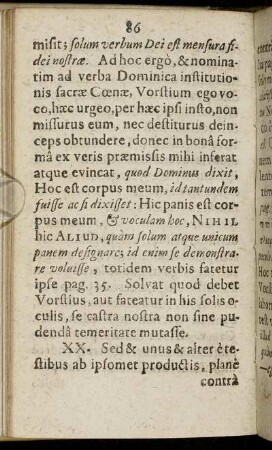 86
misit; solum verbum Dei est mensura fi-
dei nostræ. Ad hoc ergò, & nomina-
tim ad verba Dominica institutio-
nis sacræ Cœnæ, Vorstium ego vo-
co, hæc urgeo, per hæc ipsi insto, non
missurus eum, nec destiturus dein-
ceps obtundere, donec in bonâ for-
mâ ex veris præmissis mihi inferat
atque evincat, quod Dominus dixit,
Hoc est corpus meum, id tantundem
fuisse ac si dixisset: Hic panis est cor-
pus meum, & voculam hoc, NIHIL
hic ALIUD, quàm solum atque unicum
panem designare; id enim se demonstra-
re voluisse, totidem verbis fatetur
ipse pag. 35. Solvat quod debet
Vorstius, aut fateatur in his solis o-
culis, se castra nostra non sine pu-
dendâ temeritate mutasse.
XX. Sed & unus & alter è te-
stibus ab ipsomet productis, planè
contrà